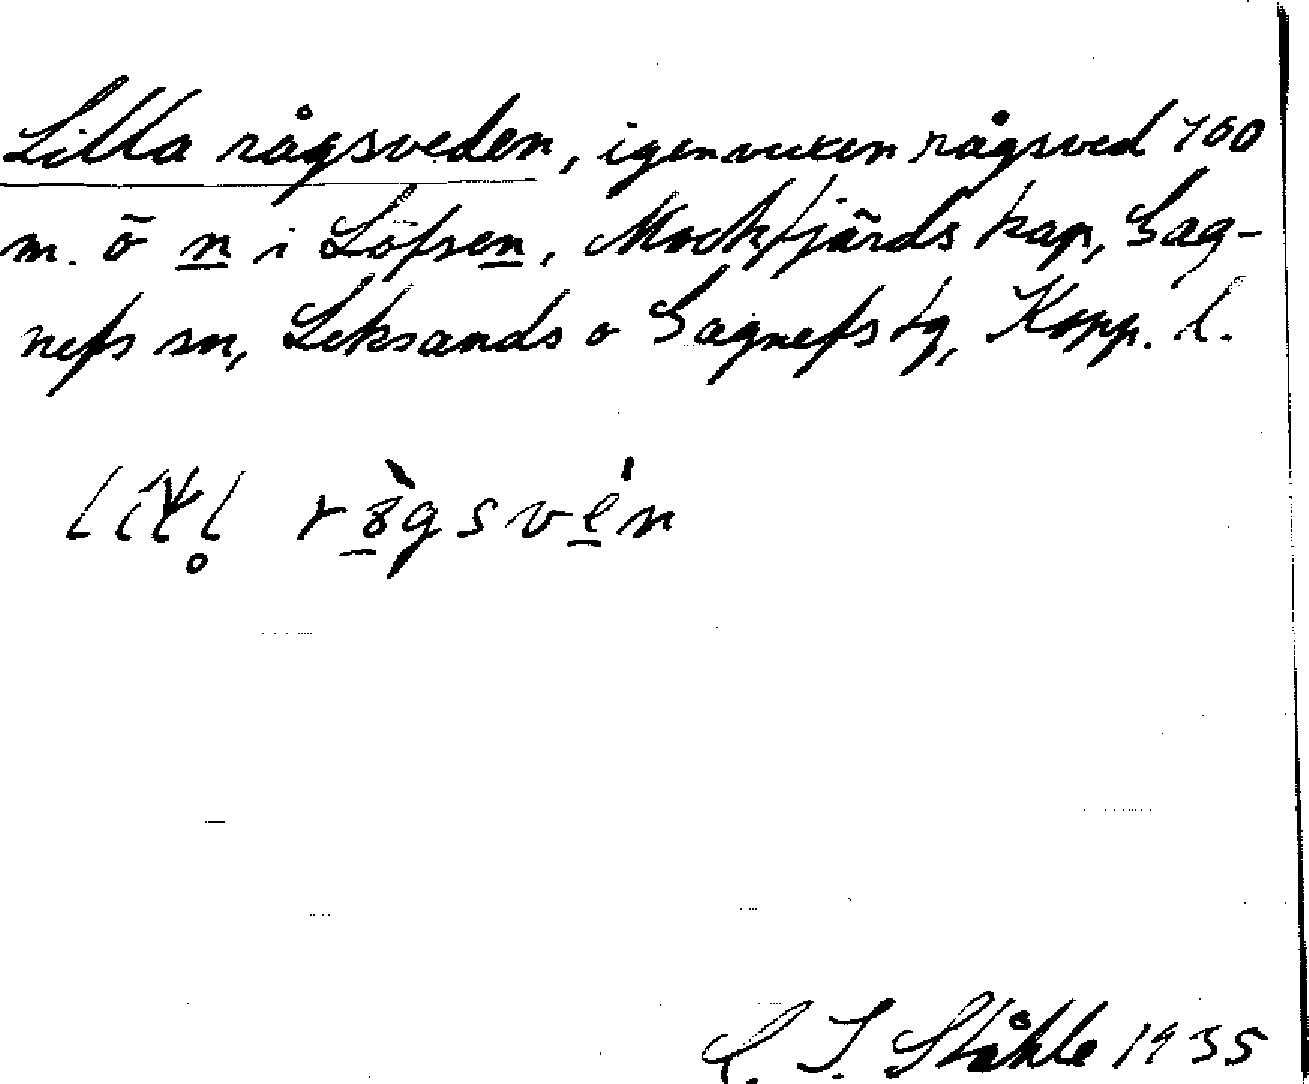 Lilla rågsveden, igenvuxen rågsved 700
m. ö n i Löfsen, Mockfjärds kap, Gag-
nefs sn, Leksands o Gagnefs tg, Kopp. l.
rògsvén
C. I. Ståhle 1935